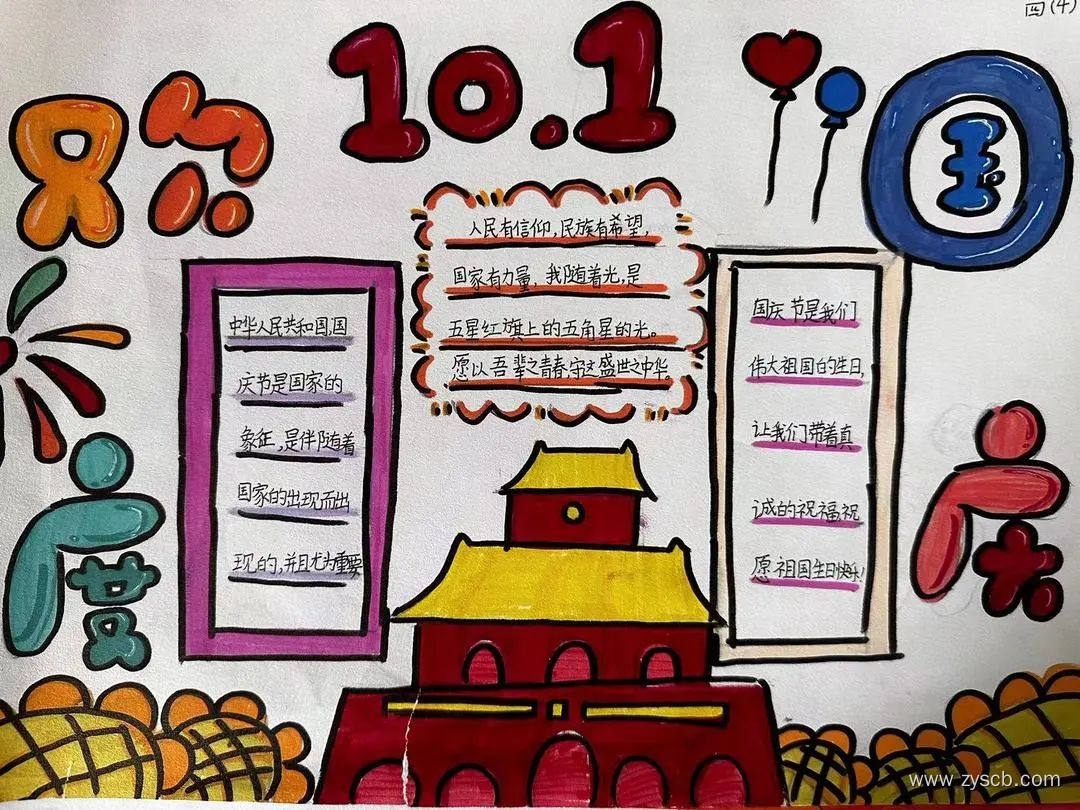 四(4)
10.1
欢
度
国
庆
人民有信仰,民族有希望,
国家有力量,我随着光,是
五星红旗上的五角星的光。
愿以吾辈之青春守这盛世之中华,
中华人民共和国,国
庆节是国家的
象征,是伴随着
国家的出现而出
现的,并且尤为重要
国庆节是我们
伟大祖国的生日,
让我们带着真
诚的祝福祝
愿祖国生日快乐!
www.zyscb.com